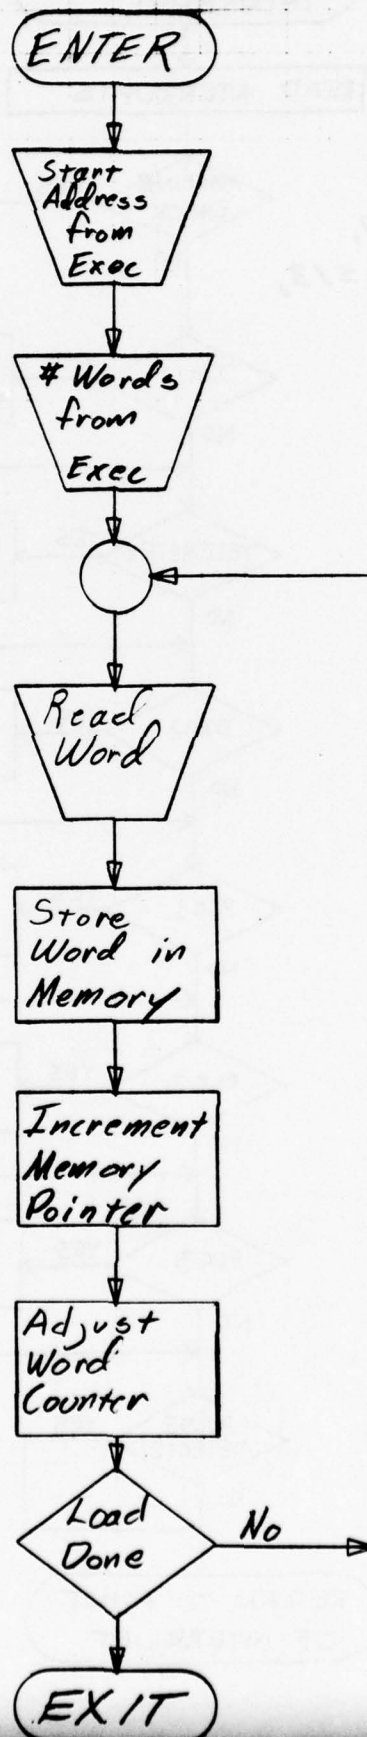 ENTER
Start
Address
from
Exec
# Words
from
Exec
Read
Word
Store
Word in
Memory
Increment
Memory
Pointer
Adjust
Word
Counter
Load
Done
No
EXIT